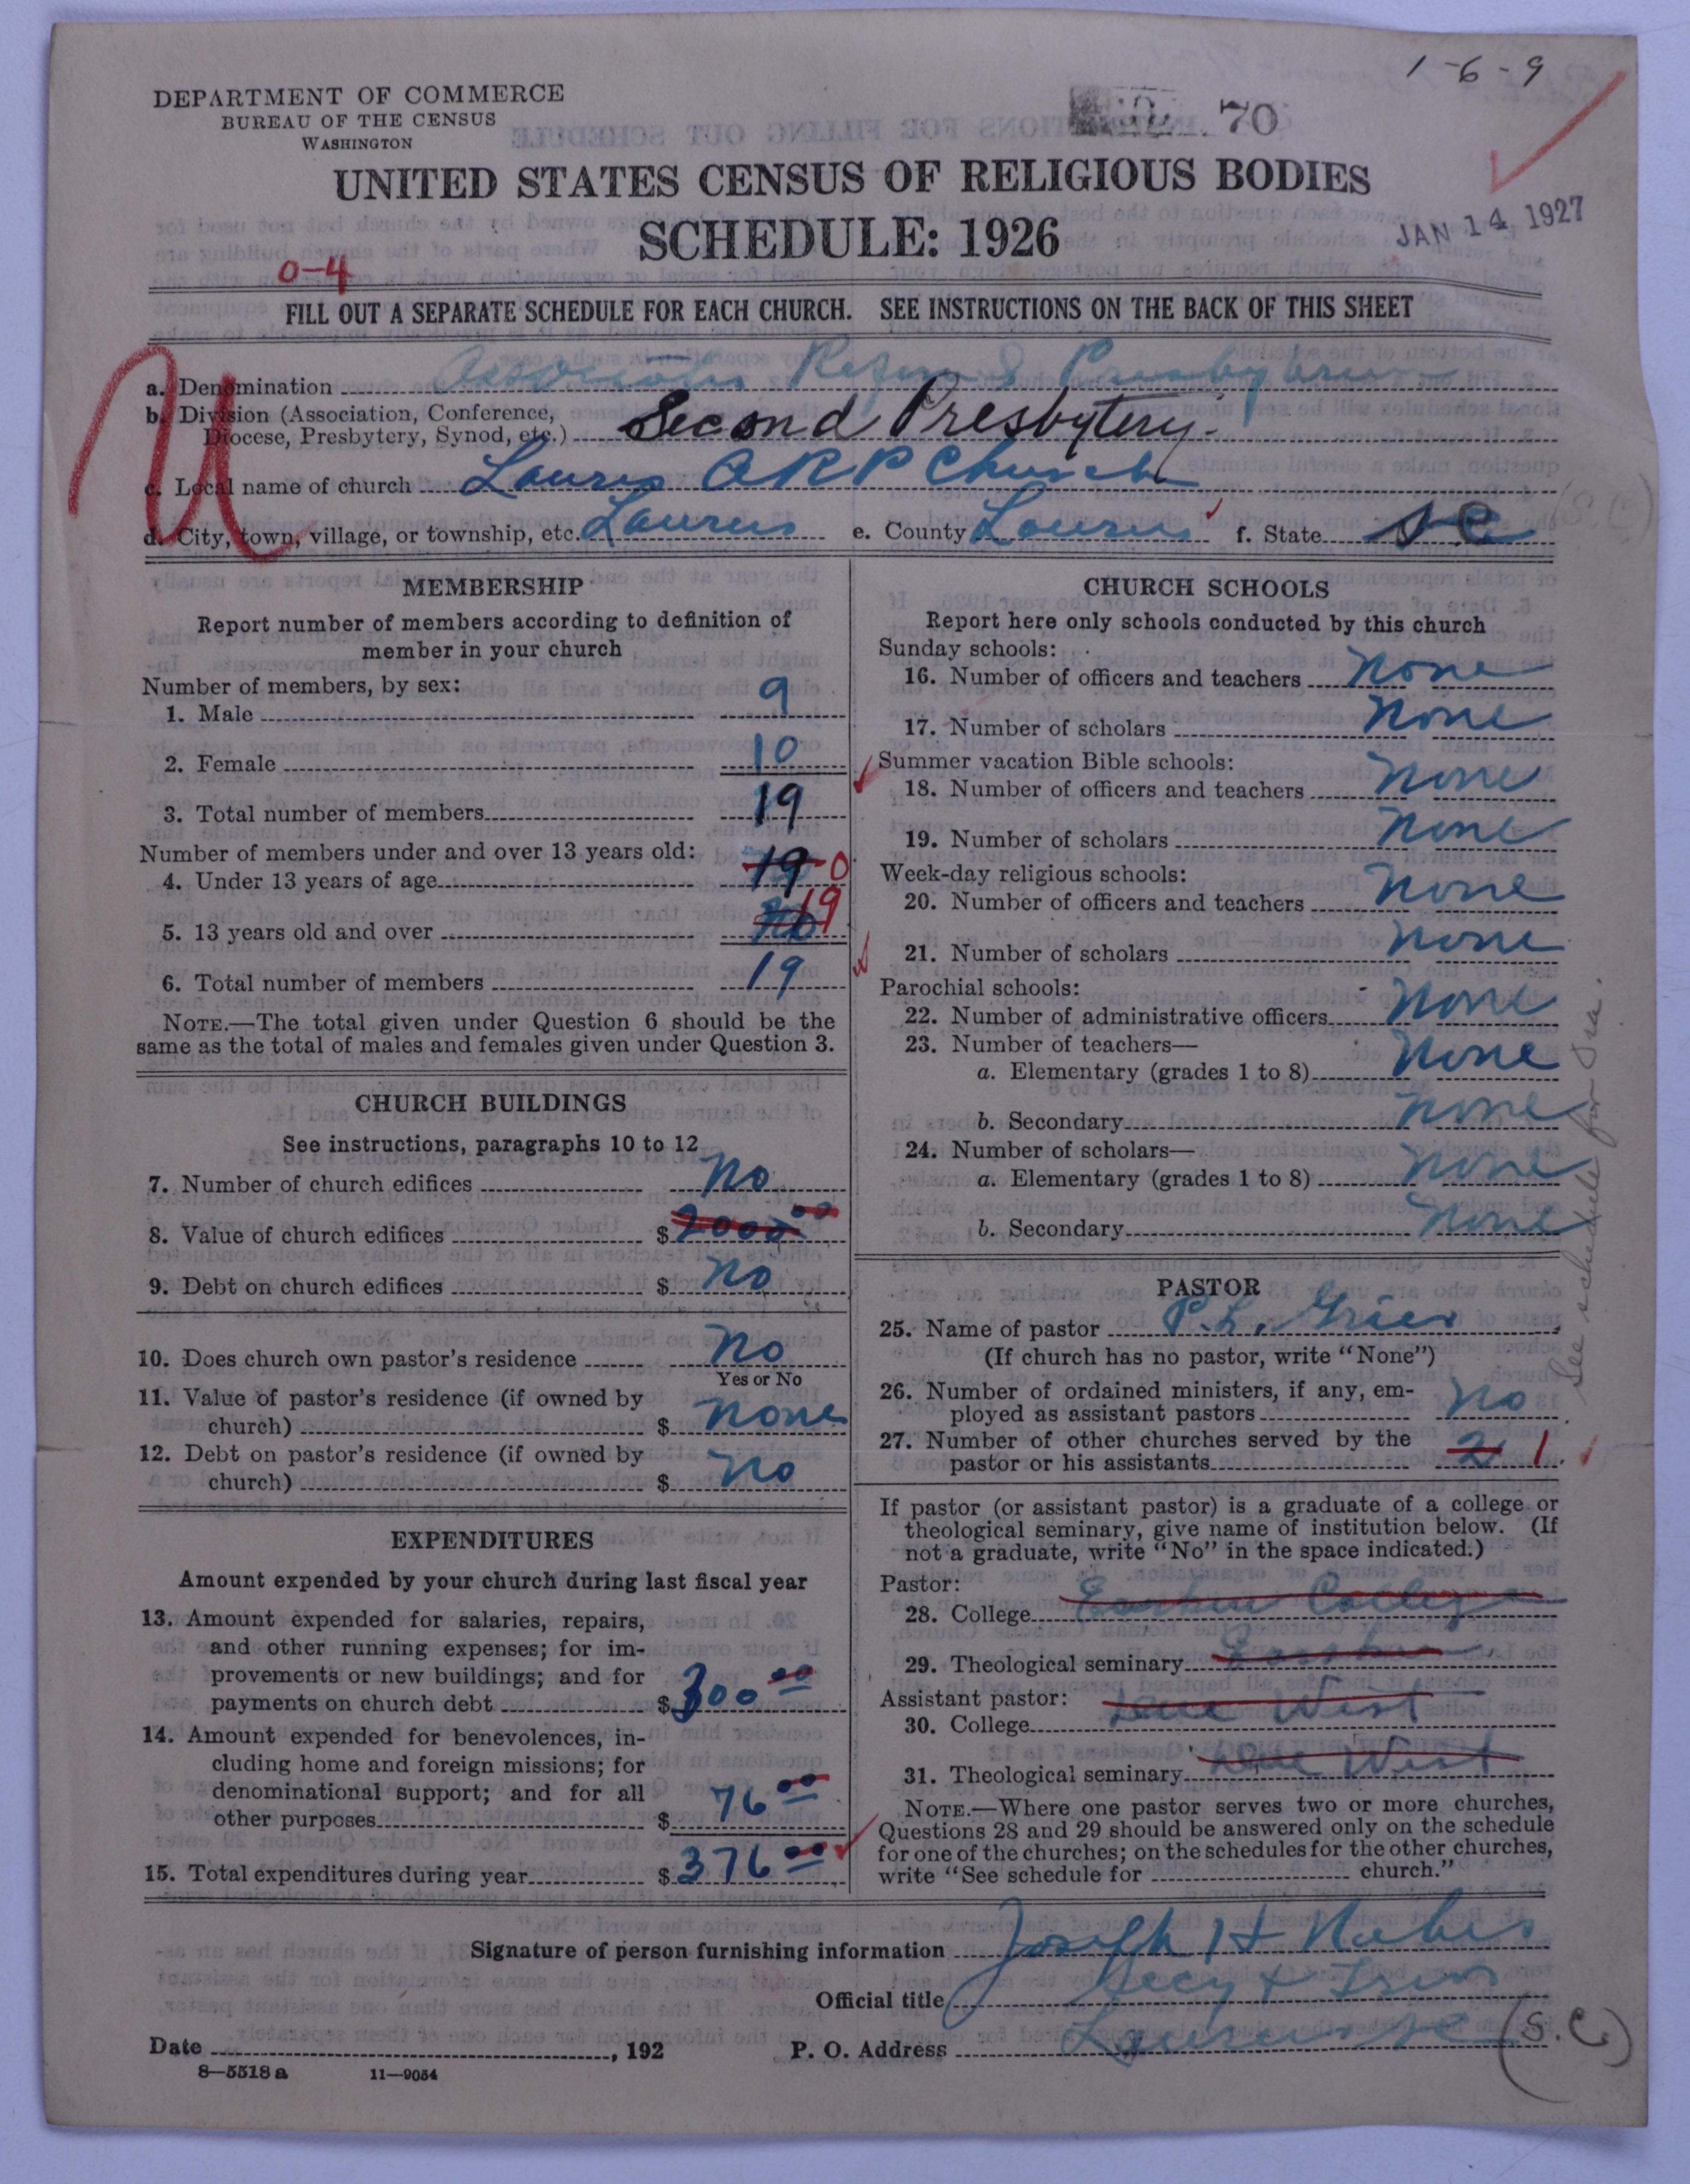 1-6-9
DEPARTMENT OF COMMERCE
BUREAU OF THE CENSUS
WASHINGTON
70
UNITED STATES CENSUS OF RELIGIOUS BODIES
SCHEDULE: 1926
JAN 14 1927
0-4
FILL OUT A SEPARATE SCHEDULE FOR EACH CHURCH. SEE INSTRUCTIONS ON THE BACK OF THIS SHEET
a. Denomination Associate Reformed Presbyterian
b. Division (Association, Conference,
Diocese, Presbytery, Synod, etc.) Second Presbytery
c. Local name of church Laurens ARP Church
d. City, town, village, or township, etc. Laurens e. County Laurens f. State S C (S.C.)
MEMBERSHIP
Report number of members according to definition of
member in your church
Number of members, by sex:
1. Male 9
2. Female 10
3. Total number of members 19
Number of members under and over 13 years old:
4. Under 13 years of age 19 0
5. 13 years old and over 19
6. Total number of members 19
NOTE.—The total given under Question 6 should be the
same as the total of males and females given under Question 3.
CHURCH BUILDINGS
See instructions, paragraphs 10 to 12
7. Number of church edifices No
8. Value of church edifices $ 2000 00
9. Debt on church edifices $ No
10. Does church own pastor's residence No
Yes or No
11. Value of pastor's residence (if owned by
church) $ None
12. Debt on pastor's residence (if owned by
church) $ No
EXPENDITURES
Amount expended by your church during last fiscal year
13. Amount expended for salaries, repairs,
and other running expenses; for im-
provements or new buildings; and for
payments on church debt $ 300 00
14. Amount expended for benevolences, in-
cluding home and foreign missions; for
denominational support; and for all
other purposes $ 76 00
15. Total expenditures during year $ 376 00
CHURCH SCHOOLS
Report here only schools conducted by this church
Sunday schools:
16. Number of officers and teachers None
17. Number of scholars None
Summer vacation Bible schools:
18. Number of officers and teachers None
19. Number of scholars None
Week-day religious schools:
20. Number of officers and teachers None
21. Number of scholars None
Parochial schools:
22. Number of administrative officers None
23. Number of teachers—
a. Elementary (grades 1 to 8) None
b. Secondary None
24. Number of scholars—
a. Elementary (grades 1 to 8) None
b. Secondary None
PASTOR
25. Name of pastor P. L. Grier
(If church has no pastor, write "None")
26. Number of ordained ministers, if any, em-
ployed as assistant pastors No
27. Number of other churches served by the
pastor or his assistants 2 1
If pastor (or assistant pastor) is a graduate of a college or
theological seminary, give name of institution below. (If
not a graduate, write "No" in the space indicated.)
Pastor:
28. College Erskine College
29. Theological seminary Erskine
Assistant pastor:
30. College Due West
31. Theological seminary Due West
NOTE.—Where one pastor serves two or more churches,
Questions 28 and 29 should be answered only on the schedule
for one of the churches; on the schedules for the other churches,
write "See schedule for church."
See schedule for
Signature of person furnishing information Joseph H
Official title Secy &
Date , 192 P. O. Address Laurens S C (S.C.)
8—5518 a 11—9054